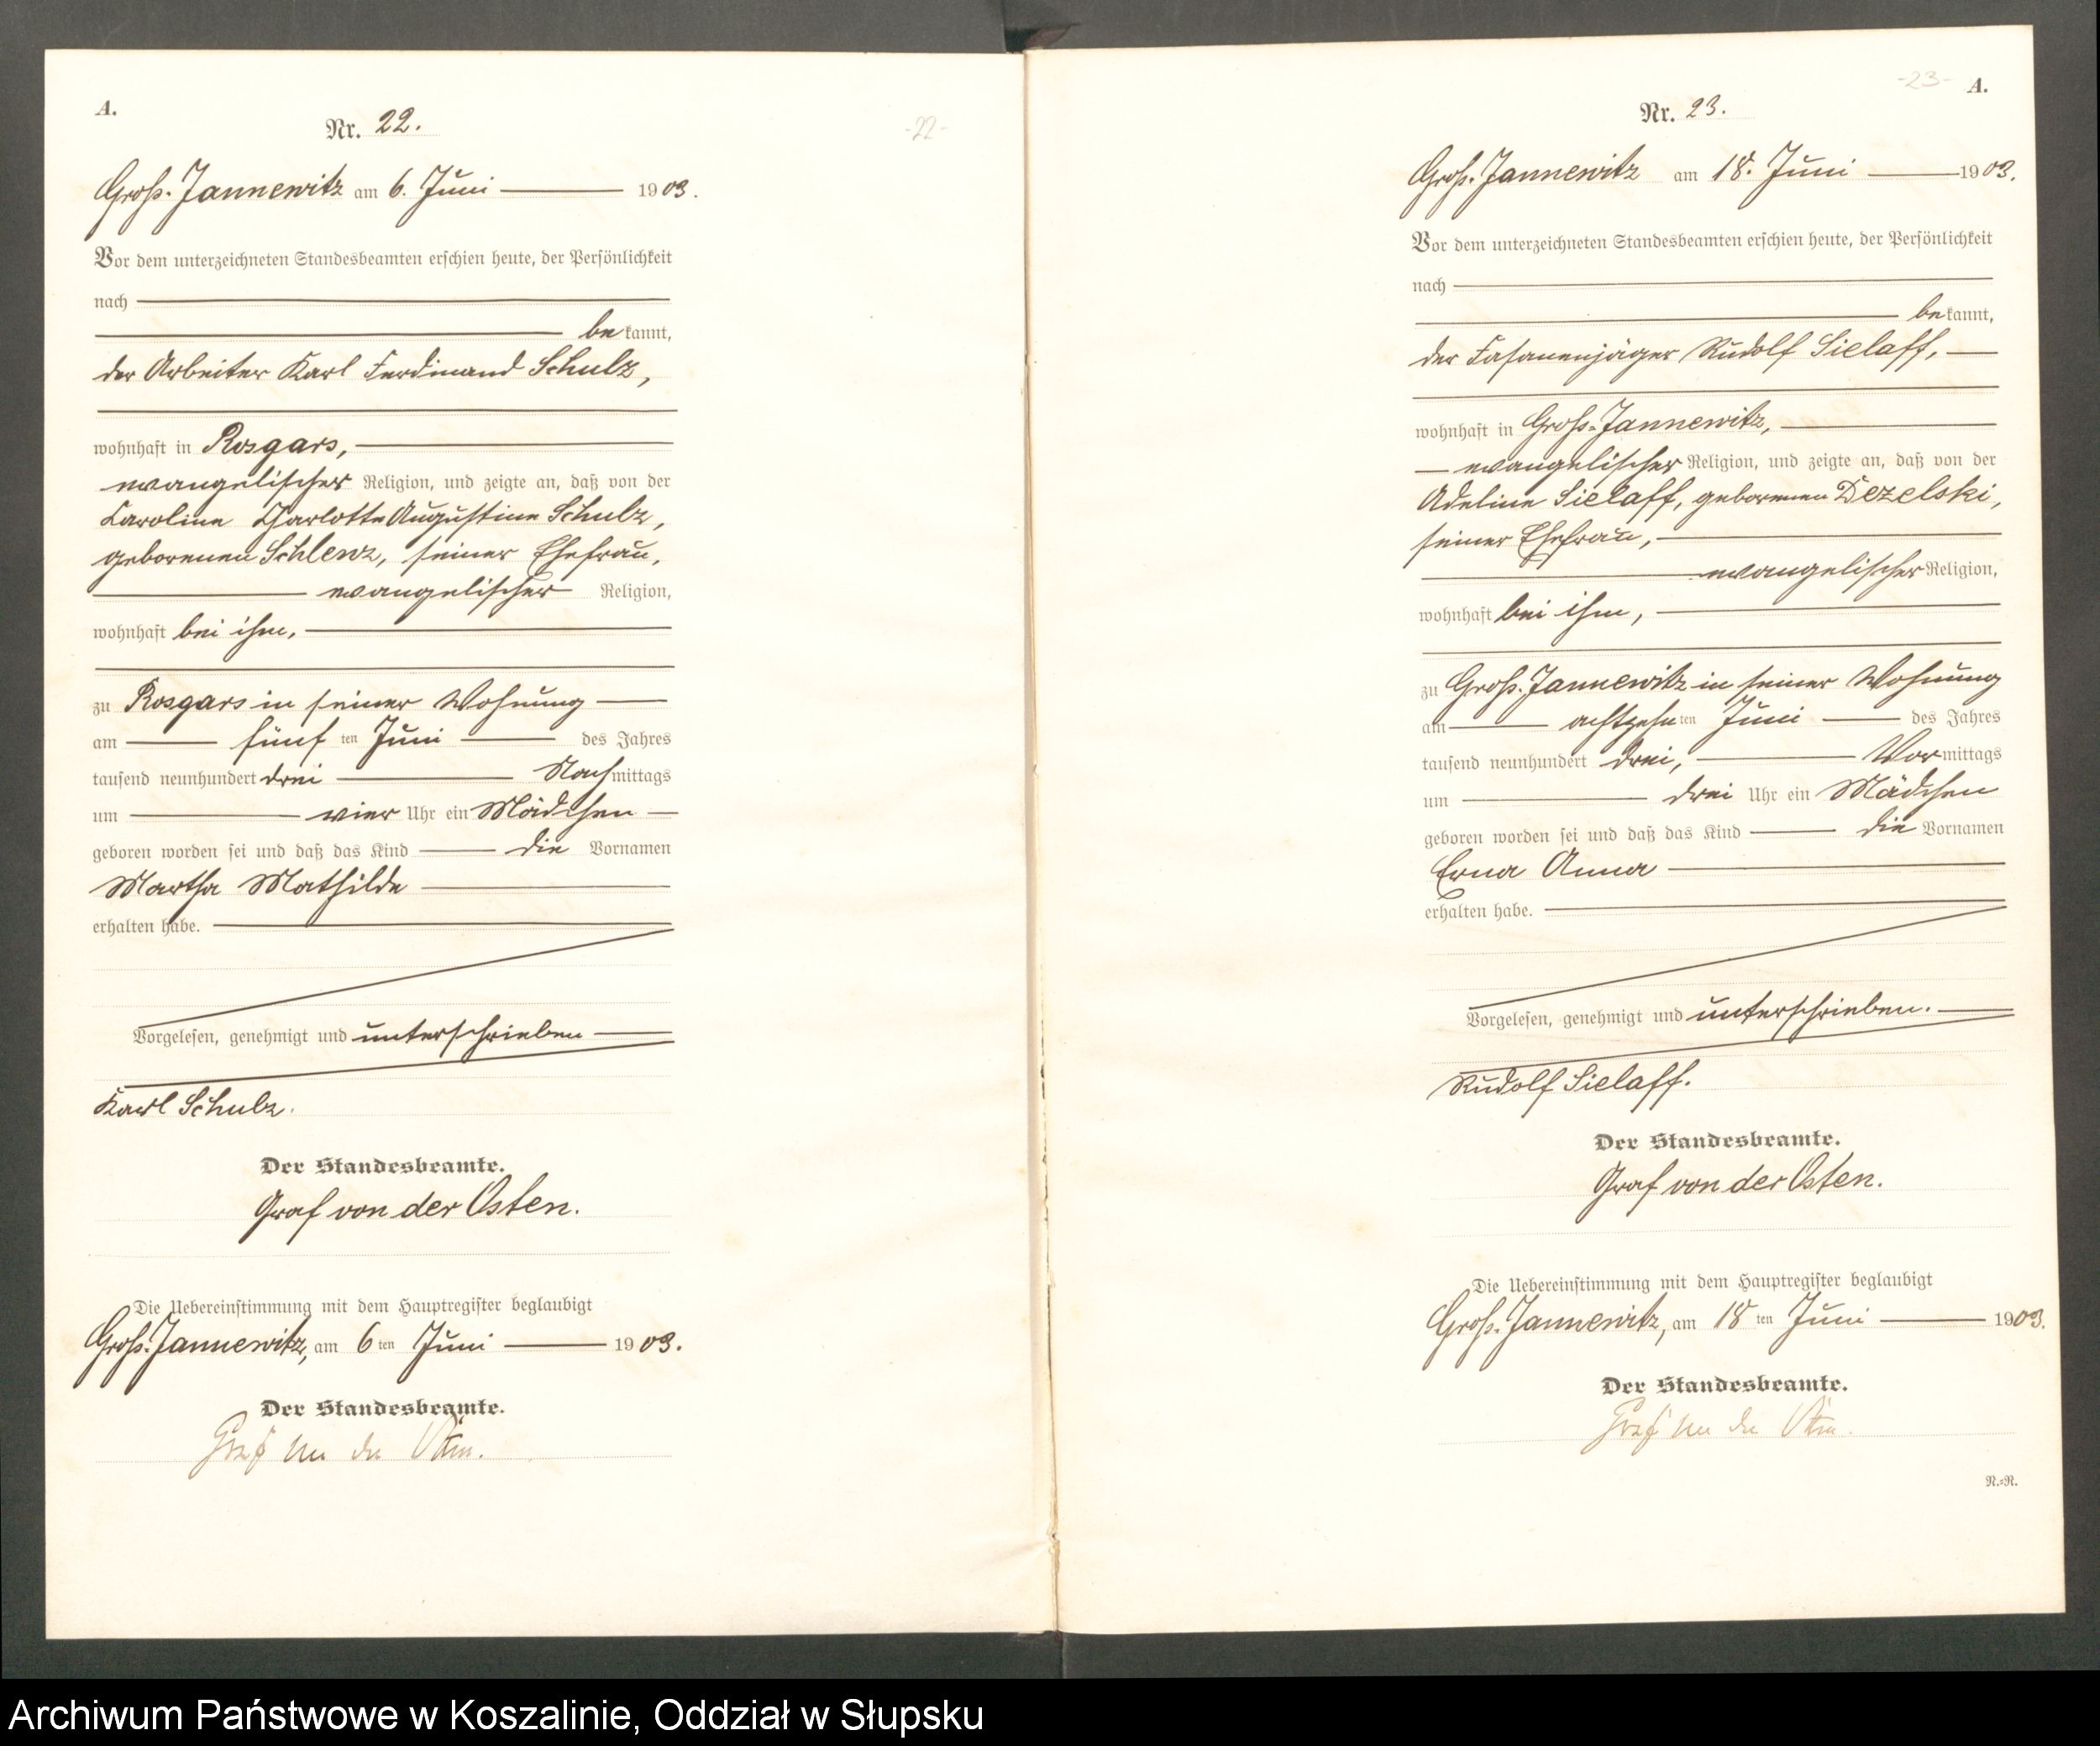 A.
Nr. 22.
-22-
Groß-Jannewitz am 6. Juni 1903.
Vor dem unterzeichneten Standesbeamten erschien heute, der Persönlichkeit
nach
bekannt,
der Arbeiter Karl Ferdinand Schulz,
wohnhaft in Rosgars,
evangelischer Religion, und zeigte an, daß von der
Karoline Charlotte Augustine Schulz,
geborenen Schlenz, seiner Ehefrau,
evangelischer Religion,
wohnhaft bei ihm,
zu Rosgars in seiner Wohnung
am fünf ten Juni des Jahres
tausend neunhundert drei Nachmittags
um vier Uhr ein Mädchen
geboren worden sei und daß das Kind die Vornamen
Martha Mathilde
erhalten habe.
Vorgelesen, genehmigt und unterschrieben
Karl Schulz.
Der Standesbeamte.
Graf von der Osten.
Die Uebereinstimmung mit dem Hauptregister beglaubigt
Groß-Jannewitz, am 6 ten Juni 1903.
Der Standesbeamte.
Graf von der Osten.
-23-
A.
Nr. 23.
Groß-Jannewitz am 18. Juni 1903.
Vor dem unterzeichneten Standesbeamten erschien heute, der Persönlichkeit
nach
bekannt,
der Fasanenjäger Rudolf Sielaff,
wohnhaft in Groß-Jannewitz,
evangelischer Religion, und zeigte an, daß von der
Adeline Sielaff, geborenen Dezelski,
seiner Ehefrau,
evangelischer Religion,
wohnhaft bei ihm,
zu Groß-Jannewitz in seiner Wohnung
am achtzehn ten Juni des Jahres
tausend neunhundert drei, Vormittags
um drei Uhr ein Mädchen
geboren worden sei und daß das Kind die Vornamen
Erna Anna
erhalten habe.
Vorgelesen, genehmigt und unterschrieben.
Rudolf Sielaff.
Der Standesbeamte.
Graf von der Osten.
Die Uebereinstimmung mit dem Hauptregister beglaubigt
Groß-Jannewitz, am 18 ten Juni 1903.
Der Standesbeamte.
Graf von der Osten.
R.-R.
Archiwum Państwowe w Koszalinie, Oddział w Słupsku